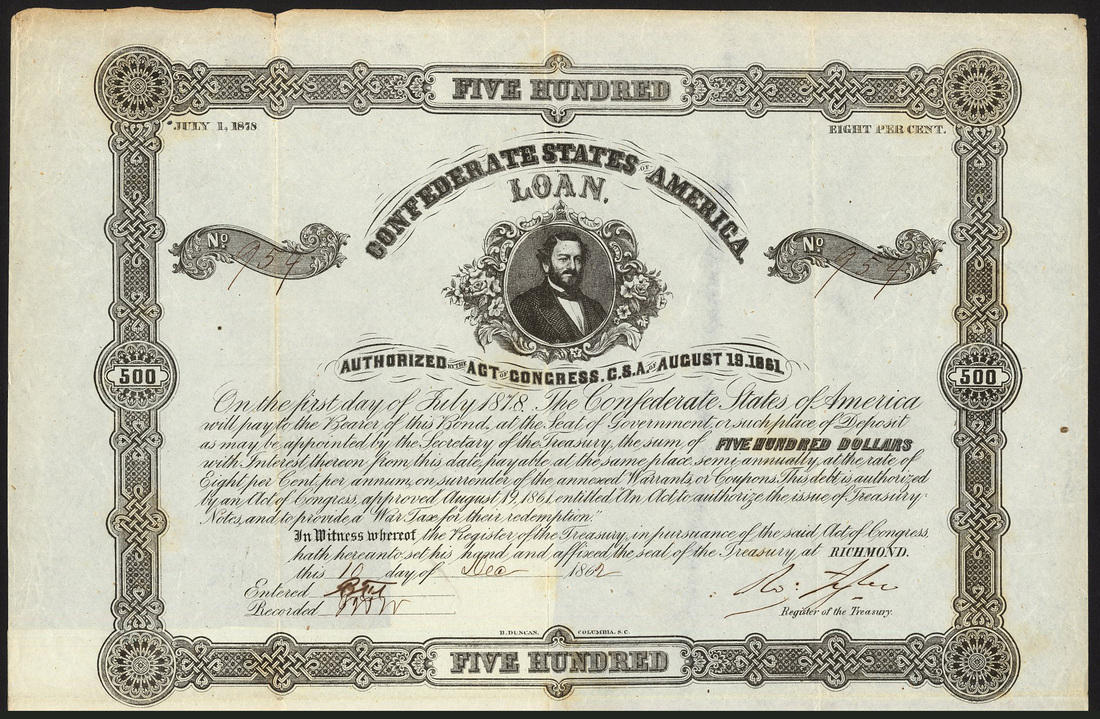 FIVE HUNDRED
JULY 1, 1878
EIGHT PER CENT.
CONFEDERATE STATES OF AMERICA
LOAN.
No 954
No 954
AUTHORIZED BY THE ACT OF CONGRESS. C.S.A. OF AUGUST 19.1861.
500
500
On the first day of July 1878. The Confederate States of America
will pay to the Bearer of this Bond, at the Seat of Government, or such place of Deposit
as may be appointed by the Secretary of the Treasury, the sum of FIVE HUNDRED DOLLARS
with Interest thereon from this date, payable at the same place semi annually, at the rate of
Eight per Cent, per annum, on surrender of the annexed Warrants or Coupons. This debt is authorized
by an Act of Congress, approved August 19, 1861, entitled An Act to authorize the issue of Treasury
Notes, and to provide a War Tax for their redemption."
In Witness whereof the Register of the Treasury, in pursuance of the said Act of Congress,
hath hereunto set his hand and affixed the seal of the Treasury, at RICHMOND.
this 10 day of Dec 1862
Entered
Recorded
Ro: Tyler
Register of the Treasury.
B. DUNCAN. COLUMBIA. S.C.
FIVE HUNDRED